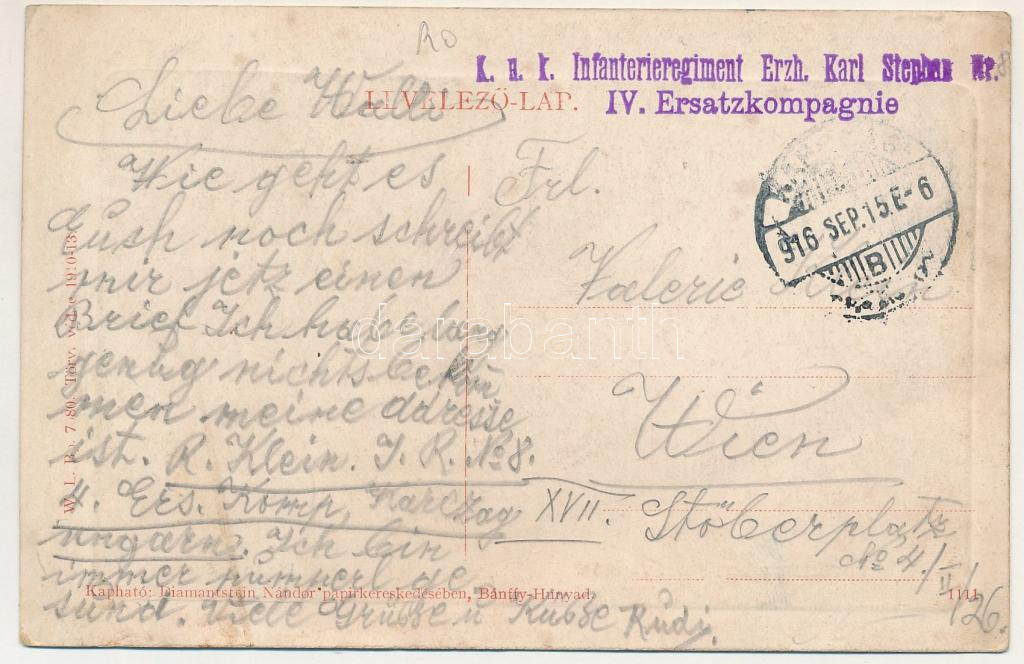 K. u. k. Infanterieregiment Erzh. Karl Stephan Nr. 8
IV. Ersatzkompagnie
LEVELEZŐ-LAP.
916 SEP.15.E-6
B
Liebe
Wie geht es
Euch noch schreibt
mir jetz einen
Brief Ich habe lang
genug nichts bekom
men meine adresse
ist. R. Klein. I. R. No 8.
4. Ers. Komp. Karczag
ungarn. Ich bin
immer pumperl ge
sund. viele Grüsse u Küsse Rudi.
Frl.
Valerie
Wien
XVII. Stöberplatz
No 4./II/26.
W. L. Bp. 7/80. Törv. védve 1910-13
Kapható: Diamantstein Nándor papirkereskedésében, Bánffy-Hunyad.
1111
darabanth